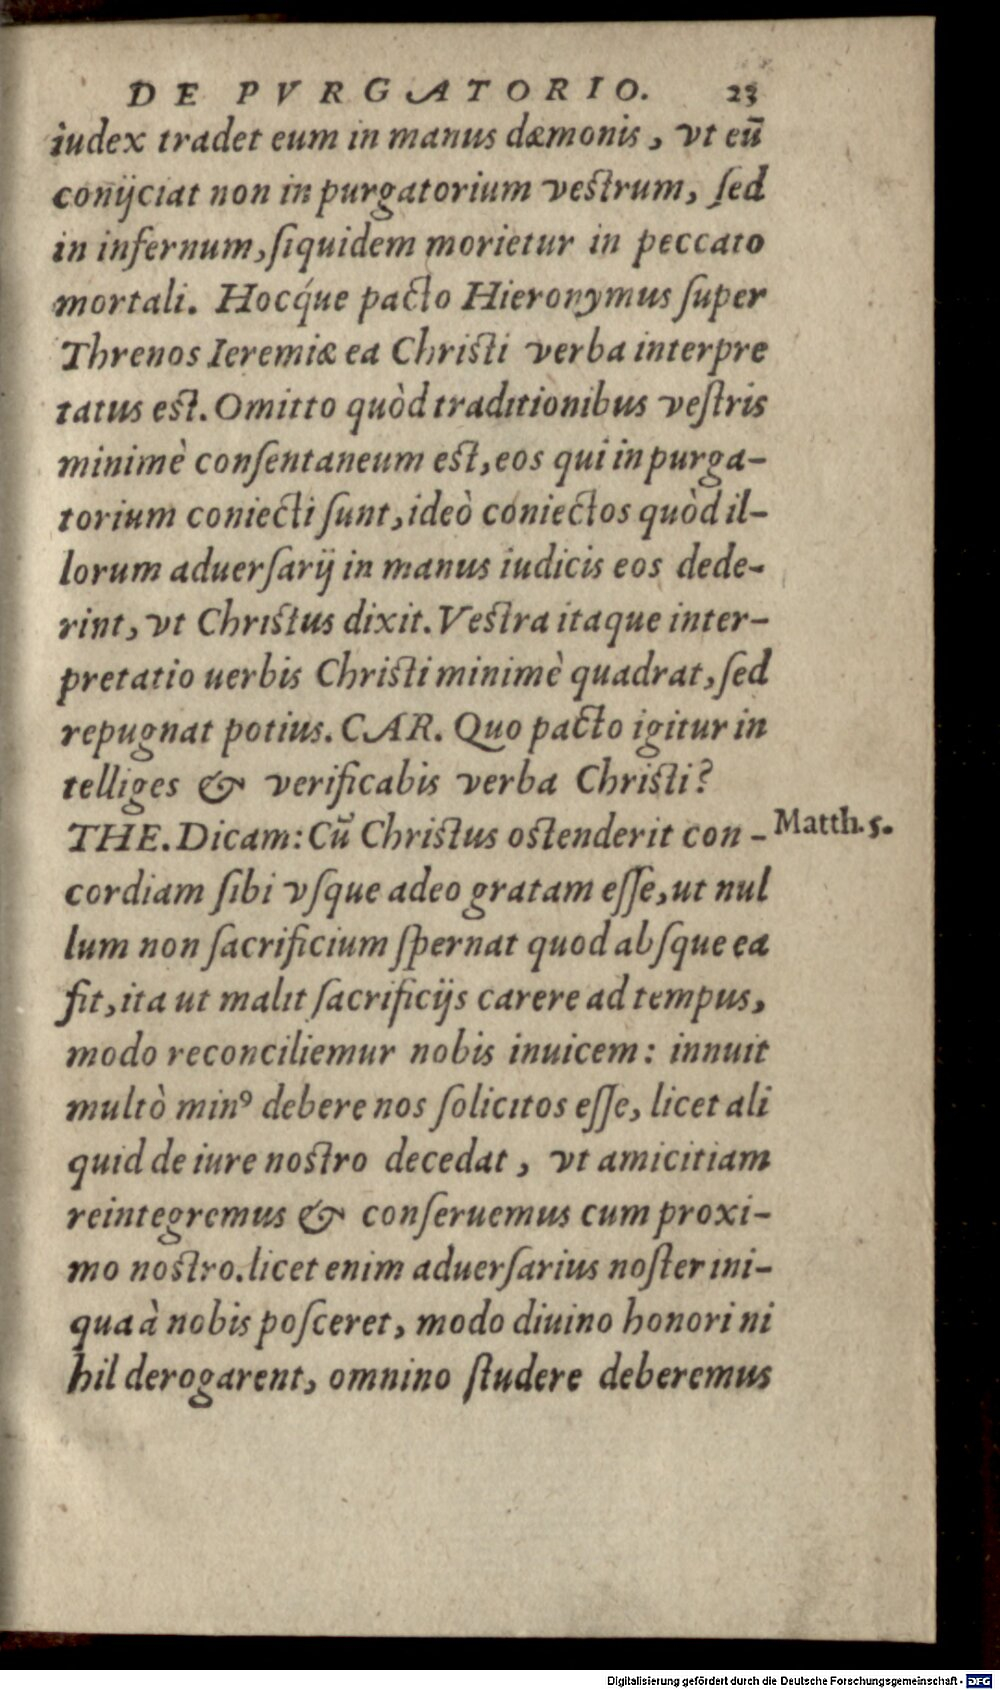 DE PVRGATORIO. 23
iudex tradet eum in manus dæmonis, vt eū
conijciat non in purgatorium vestrum, ſed
in infernum, ſiquidem morietur in peccato
mortali. Hocq́ue pacto Hieronymus ſuper
Threnos Ieremiæ ea Christi verba interpre
tatus est. Omitto quòd traditionibus veſtris
minimè conſentaneum est, eos qui in purga-
torium coniecti ſunt, ideò coniectos quòd il-
lorum aduerſarij in manus iudicis eos dede-
rint, vt Christus dixit. Vestra itaque inter-
pretatio uerbis Christi minimè quadrat, ſed
repugnat potius. CAR. Quo pacto igitur in
telliges & verificabis verba Christi?
THE. Dicam: Cū Christus oſtenderit con-
Matth. 5.
cordiam ſibi vſque adeo gratam eſſe, ut nul
lum non ſacrificium ſpernat quod abſque ea
fit, ita ut malit ſacrificijs carere ad tempus,
modo reconciliemur nobis inuicem: innuit
multò minꝰ debere nos ſolicitos eſſe, licet ali
quid de iure nostro decedat, vt amicitiam
reintegremus & conſeruemus cum proxi-
mo nostro. licet enim aduerſarius noſter ini-
qua à nobis poſceret, modo diuino honori ni
hil derogarent, omnino ſtudere deberemus
Digitalisierung gefördert durch die Deutsche Forschungsgemeinschaft - DFG